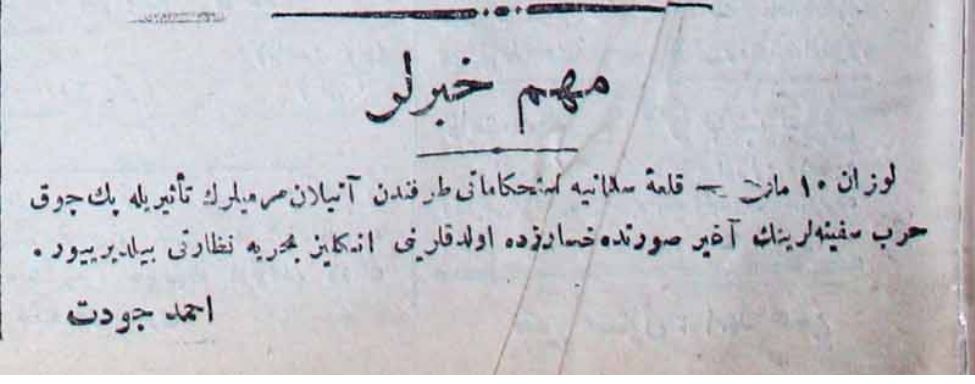 مهم خبرلر
لوزان ۱۰ مارت — قلعهٔ سلطانیه استحکاماتی طرفندن آتیلان مرمیلرك تأثیریله پك چوق
حرب سفینه‌لرینك آغیر صورتده خسارزده اولدقلرینی انكلیز بحریه نظارتی بیلدیرییور .
احمد جودت